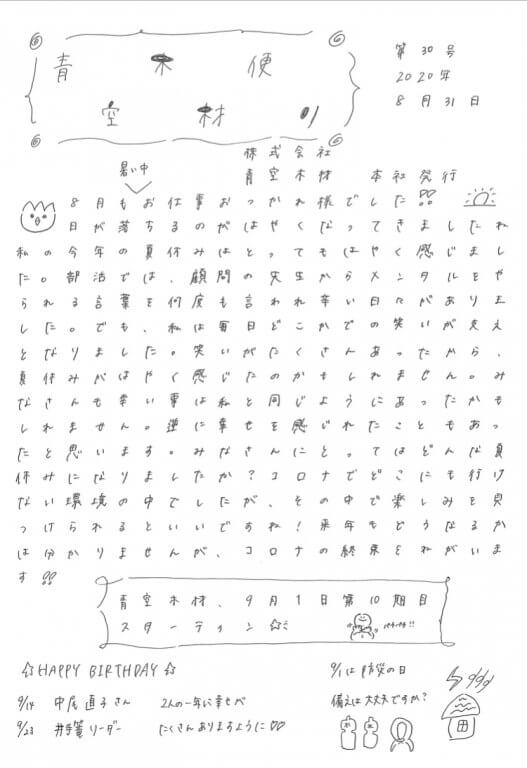 青木便
空材り
第30号
2020年
8月31日
株式会社
青空木材 本社発行
暑い中
8月もお仕事おつかれ様でした!!
日が落ちるのがはやくなってきましたね
私の今年の夏休みはとってもはやく感じまし
た。部活では、顧問の先生からメンタルをや
られる言葉を何度も言われ辛い日々がありま
した。でも、私は毎日どこかでの笑いが支え
となりました。笑いがたくさんあったから、
夏休みがはやく感じたのかもしれません。み
なさんも辛い事は私と同じようにあったかも
しれません。逆に幸せを感じれたこともあっ
たと思います。みなさんにとってはどんな夏
休みになりましたか?コロナでどこにも行け
ない環境の中でしたが、その中で楽しみを見
つけられるといいですね!来年もどうなるか
は分かりませんが、コロナの終束をねがいま
す!!
青空木材、9月1日第10期目
スターティン☆ミ
パチパチ!!
☆HAPPY BIRTHDAY☆
9/14 中尾 直子さん
9/23 井手篭リーダー
2人の一年に幸せが
たくさんありますように♡♡
9/1は防災の日
備えは大丈夫ですか?